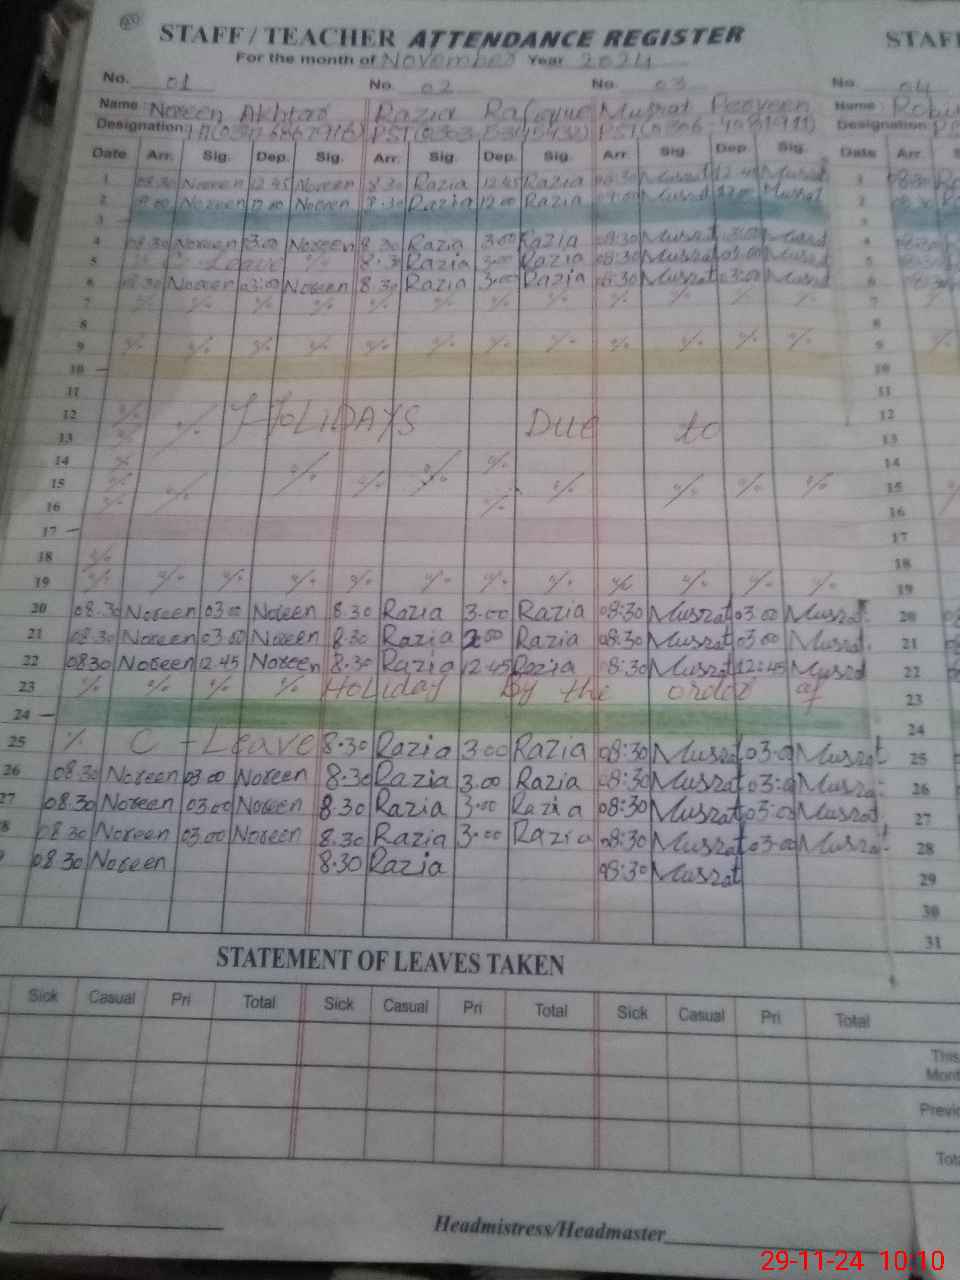 STAFF / TEACHER ATTENDANCE REGISTER STAF
For the month of November Year 2024
No. 01 No. 02 No. 03 No. 04
Name: Noreen Akhtar Razia Rafique Musrat Parveen Name: Robi
Designation: PST PST Designation:
Date Arr. Sig. Dep. Sig. Arr. Sig. Dep. Sig. Arr. Sig. Dep. Sig. Date Arr.
1 08.30 Noreen 12.45 Noreen 8.30 Razia 12.45 Razia 08:30 Musrat 12:45 Musrat 1
2 Noreen 12.00 Noreen 8.30 Razia 12.00 Razia Musrat 12.00 Musrat 2
3 3
4 08.30 Noreen 3.00 Noreen 8.30 Razia 3.00 Razia 08:30 Musrat 3:00 Musrat 4
5 C - Leave % 8.30 Razia 3.00 Razia 08:30 Musrat 03:00 Musrat 5
6 08.30 Noreen 03:00 Noreen 8.30 Razia 3.00 Razia 08:30 Musrat 03:00 Musrat 6
7 % % % % % % % % % % % % 7
8 8
9 % % % % % % % % % % % % 9
10 10
11 11
12 % % HOLIDAYS DUE to 12
13 % 13
14 % % % % % 14
15 % % % % % % % 15
16 % % 16
17 17
18 % 18
19 % % % % % % % % % % % % 19
20 08.30 Noreen 03.00 Noreen 8.30 Razia 3.00 Razia 08:30 Musrat 03:00 Musrat 20
21 08.30 Noreen 03.00 Noreen 8.30 Razia 2.00 Razia 08:30 Musrat 03:00 Musrat 21
22 0830 Noreen 12.45 Noreen 8.30 Razia 12.45 Razia 08:30 Musrat 12:45 Musrat 22
23 % % % % Holiday by the order of 23
24 24
25 % C - Leave 8.30 Razia 3.00 Razia 08:30 Musrat 03:0 Musrat 25
26 08.30 Noreen 03.00 Noreen 8.30 Razia 3.00 Razia 08:30 Musrat 03:0 Musrat 26
27 08.30 Noreen 03.00 Noreen 8.30 Razia 3.00 Razia 08:30 Musrat 03:00 Musrat 27
8 08.30 Noreen 03.00 Noreen 8.30 Razia 3.00 Razia 08:30 Musrat 03:00 Musrat 28
08.30 Noreen 8.30 Razia 08:30 Musrat 29
30
31
STATEMENT OF LEAVES TAKEN
Sick Casual Pri Total Sick Casual Pri Total Sick Casual Pri Total
This
Mont
Previo
Tot
Headmistress/Headmaster
29-11-24 10:10